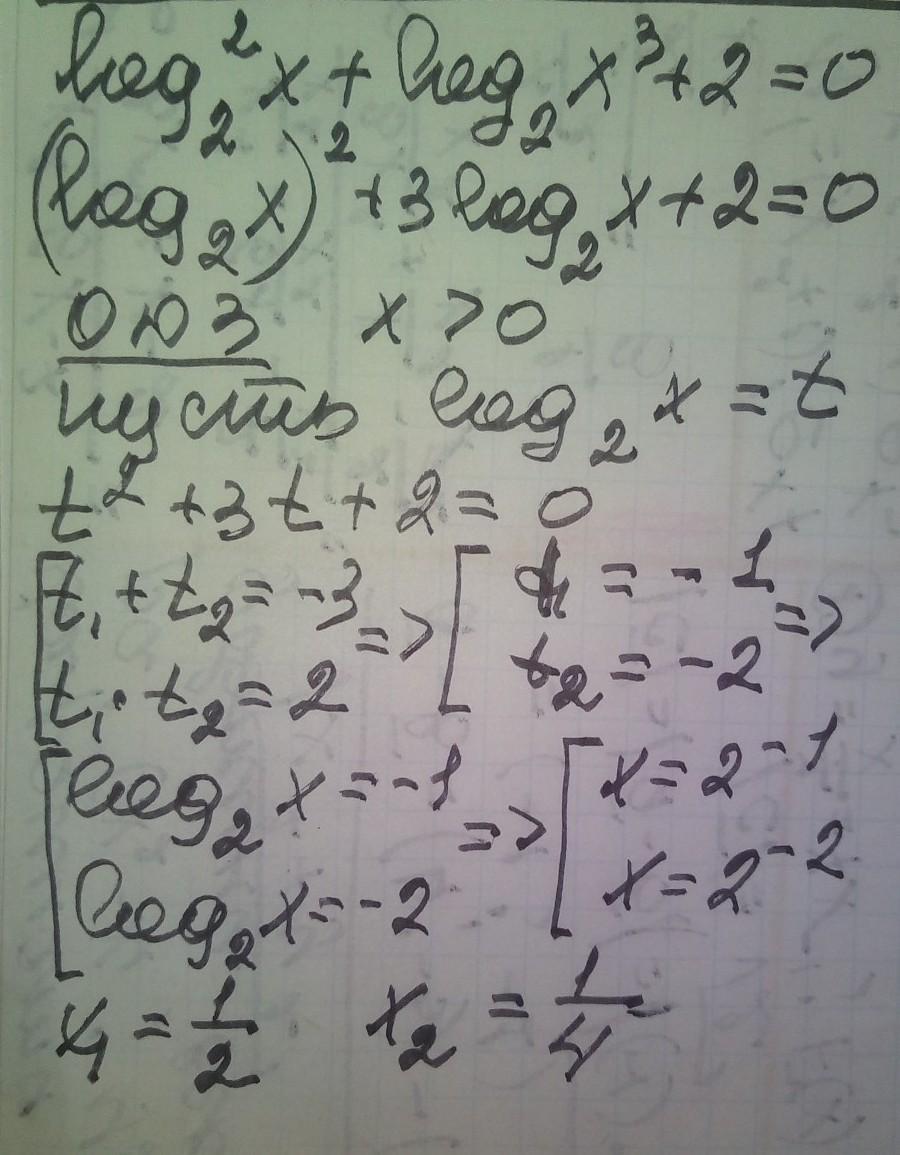 log₂²x + log₂x³ + 2 = 0
(log₂x)² + 3log₂x + 2 = 0
ОДЗ x > 0
пусть log₂x = t
t² + 3t + 2 = 0
[t₁ + t₂ = -3 => [t₁ = -1 =>
t₁ · t₂ = 2 t₂ = -2
[log₂x = -1 => [x = 2⁻¹
log₂x = -2 x = 2⁻²
x₁ = 1/2 x₂ = 1/4